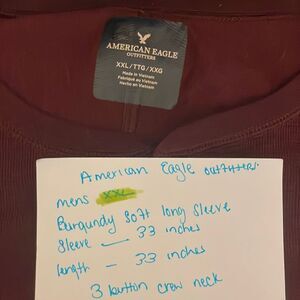 AMERICAN EAGLE
OUTFITTERS
XXL/TTG/XXG
Made in Vietnam
Fabriqué au Vietnam
Hecho en Vietnam
American Eagle outfitters.
mens xxl
Burgundy soft long sleeve
sleeve — 33 inches
length — 33 inches
3 button crew neck